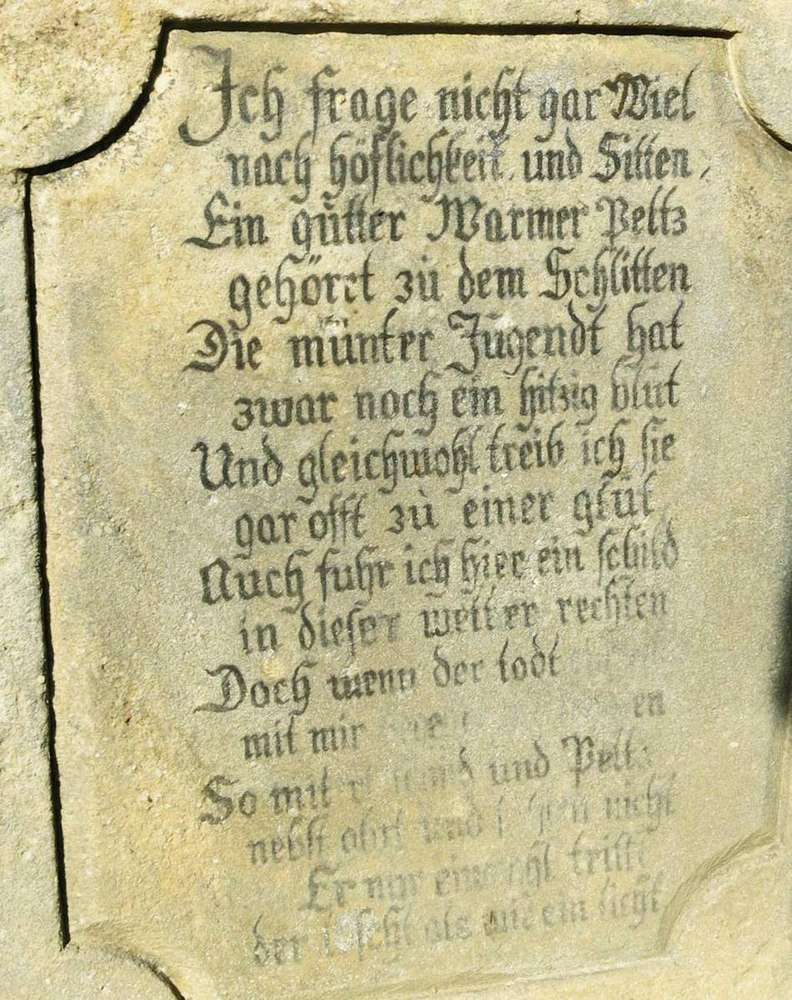 Ich frage nicht gar Wiel
nach höflichkeit und Sitten,
Ein gůtter Warmer Peltz
gehörct zů dem Schlitten
Die můnter Jůgendt hat
zwar noch ein hitzig blůt
Und gleichwohl treib ich sie
gar offt zů einer glůt
Auch fuhr ich hier ein schild
in dieser wetter rechten
Doch wenn der todt
mit mir
So mit und Peltz
nebst ohrt und nicht
Er nur einmahl
der als wie ein licht